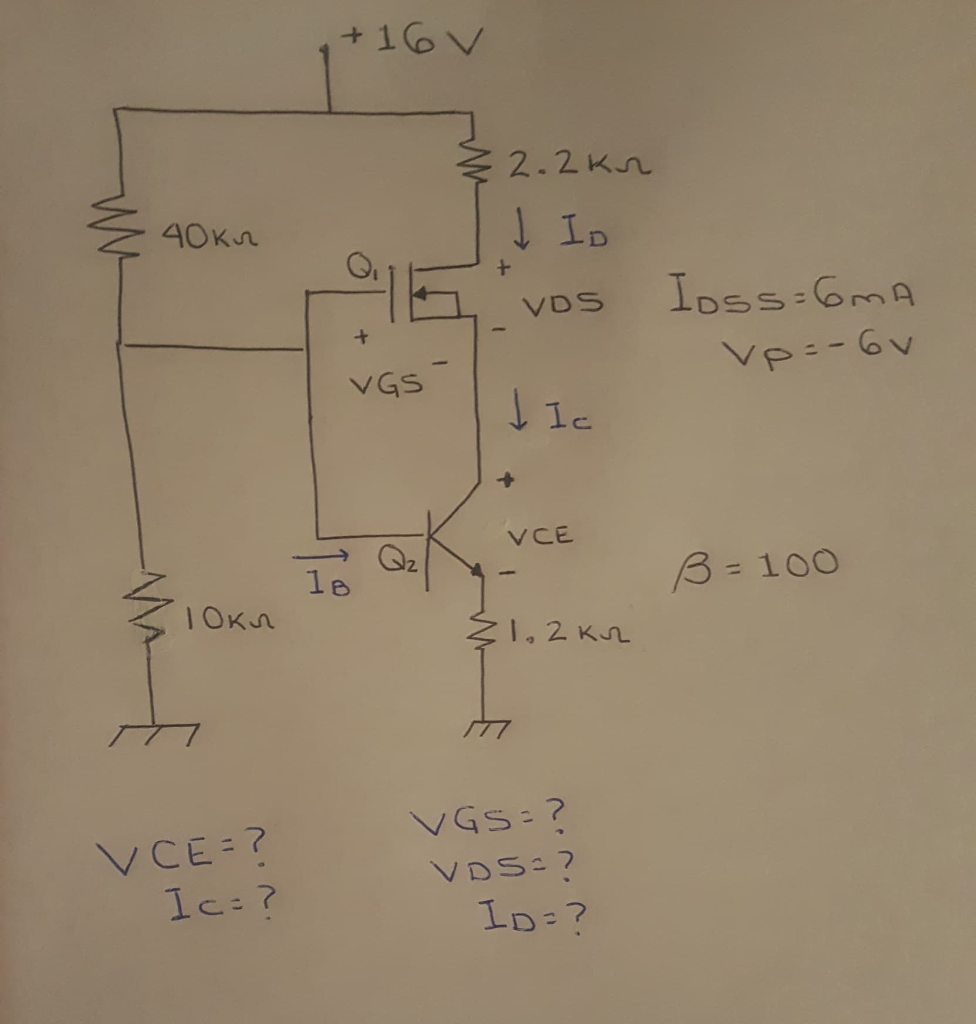 +16V
2.2KΩ
40KΩ
↓ ID
Q1
+
VDS
-
IDSS=6mA
Vp=-6v
+
VGS -
↓ Ic
+
VCE
-
Q2
→
IB
β=100
10KΩ
1.2KΩ
VCE=?
Ic=?
VGS=?
VDS=?
ID=?